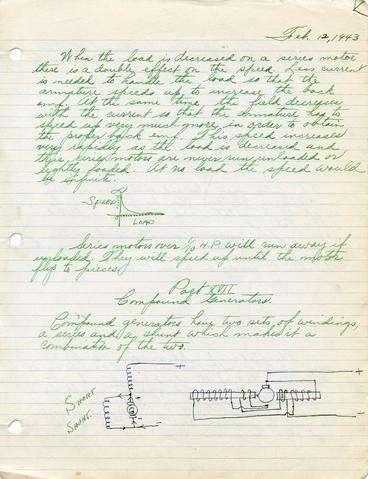 Feb. 12, 1943
When the load is decreased on a series motor
there is a double effect on the speed. Less current
is needed to handle the load so the the
armature speeds up to increase the back
emf. At the same time the field decreases
with the current so that the armature has to
speed up very much more in order to obtain
the proper back emf. This speed increases
very rapidly as the load is decreased and
thus, series motors are never run unloaded or
lightly loaded. At no load the speed would
be infinite.
SPEED
LOAD
Series motors over 1/10 H.P. will run away if
unloaded. They will speed up until the motor
flys to pieces.
Part XVII
Compound Generators
Compound generators have two sets of windings,
a series and a shunt which makes it a
combination of the two.
SHORT
SHUNT.
+
-
G
+
-